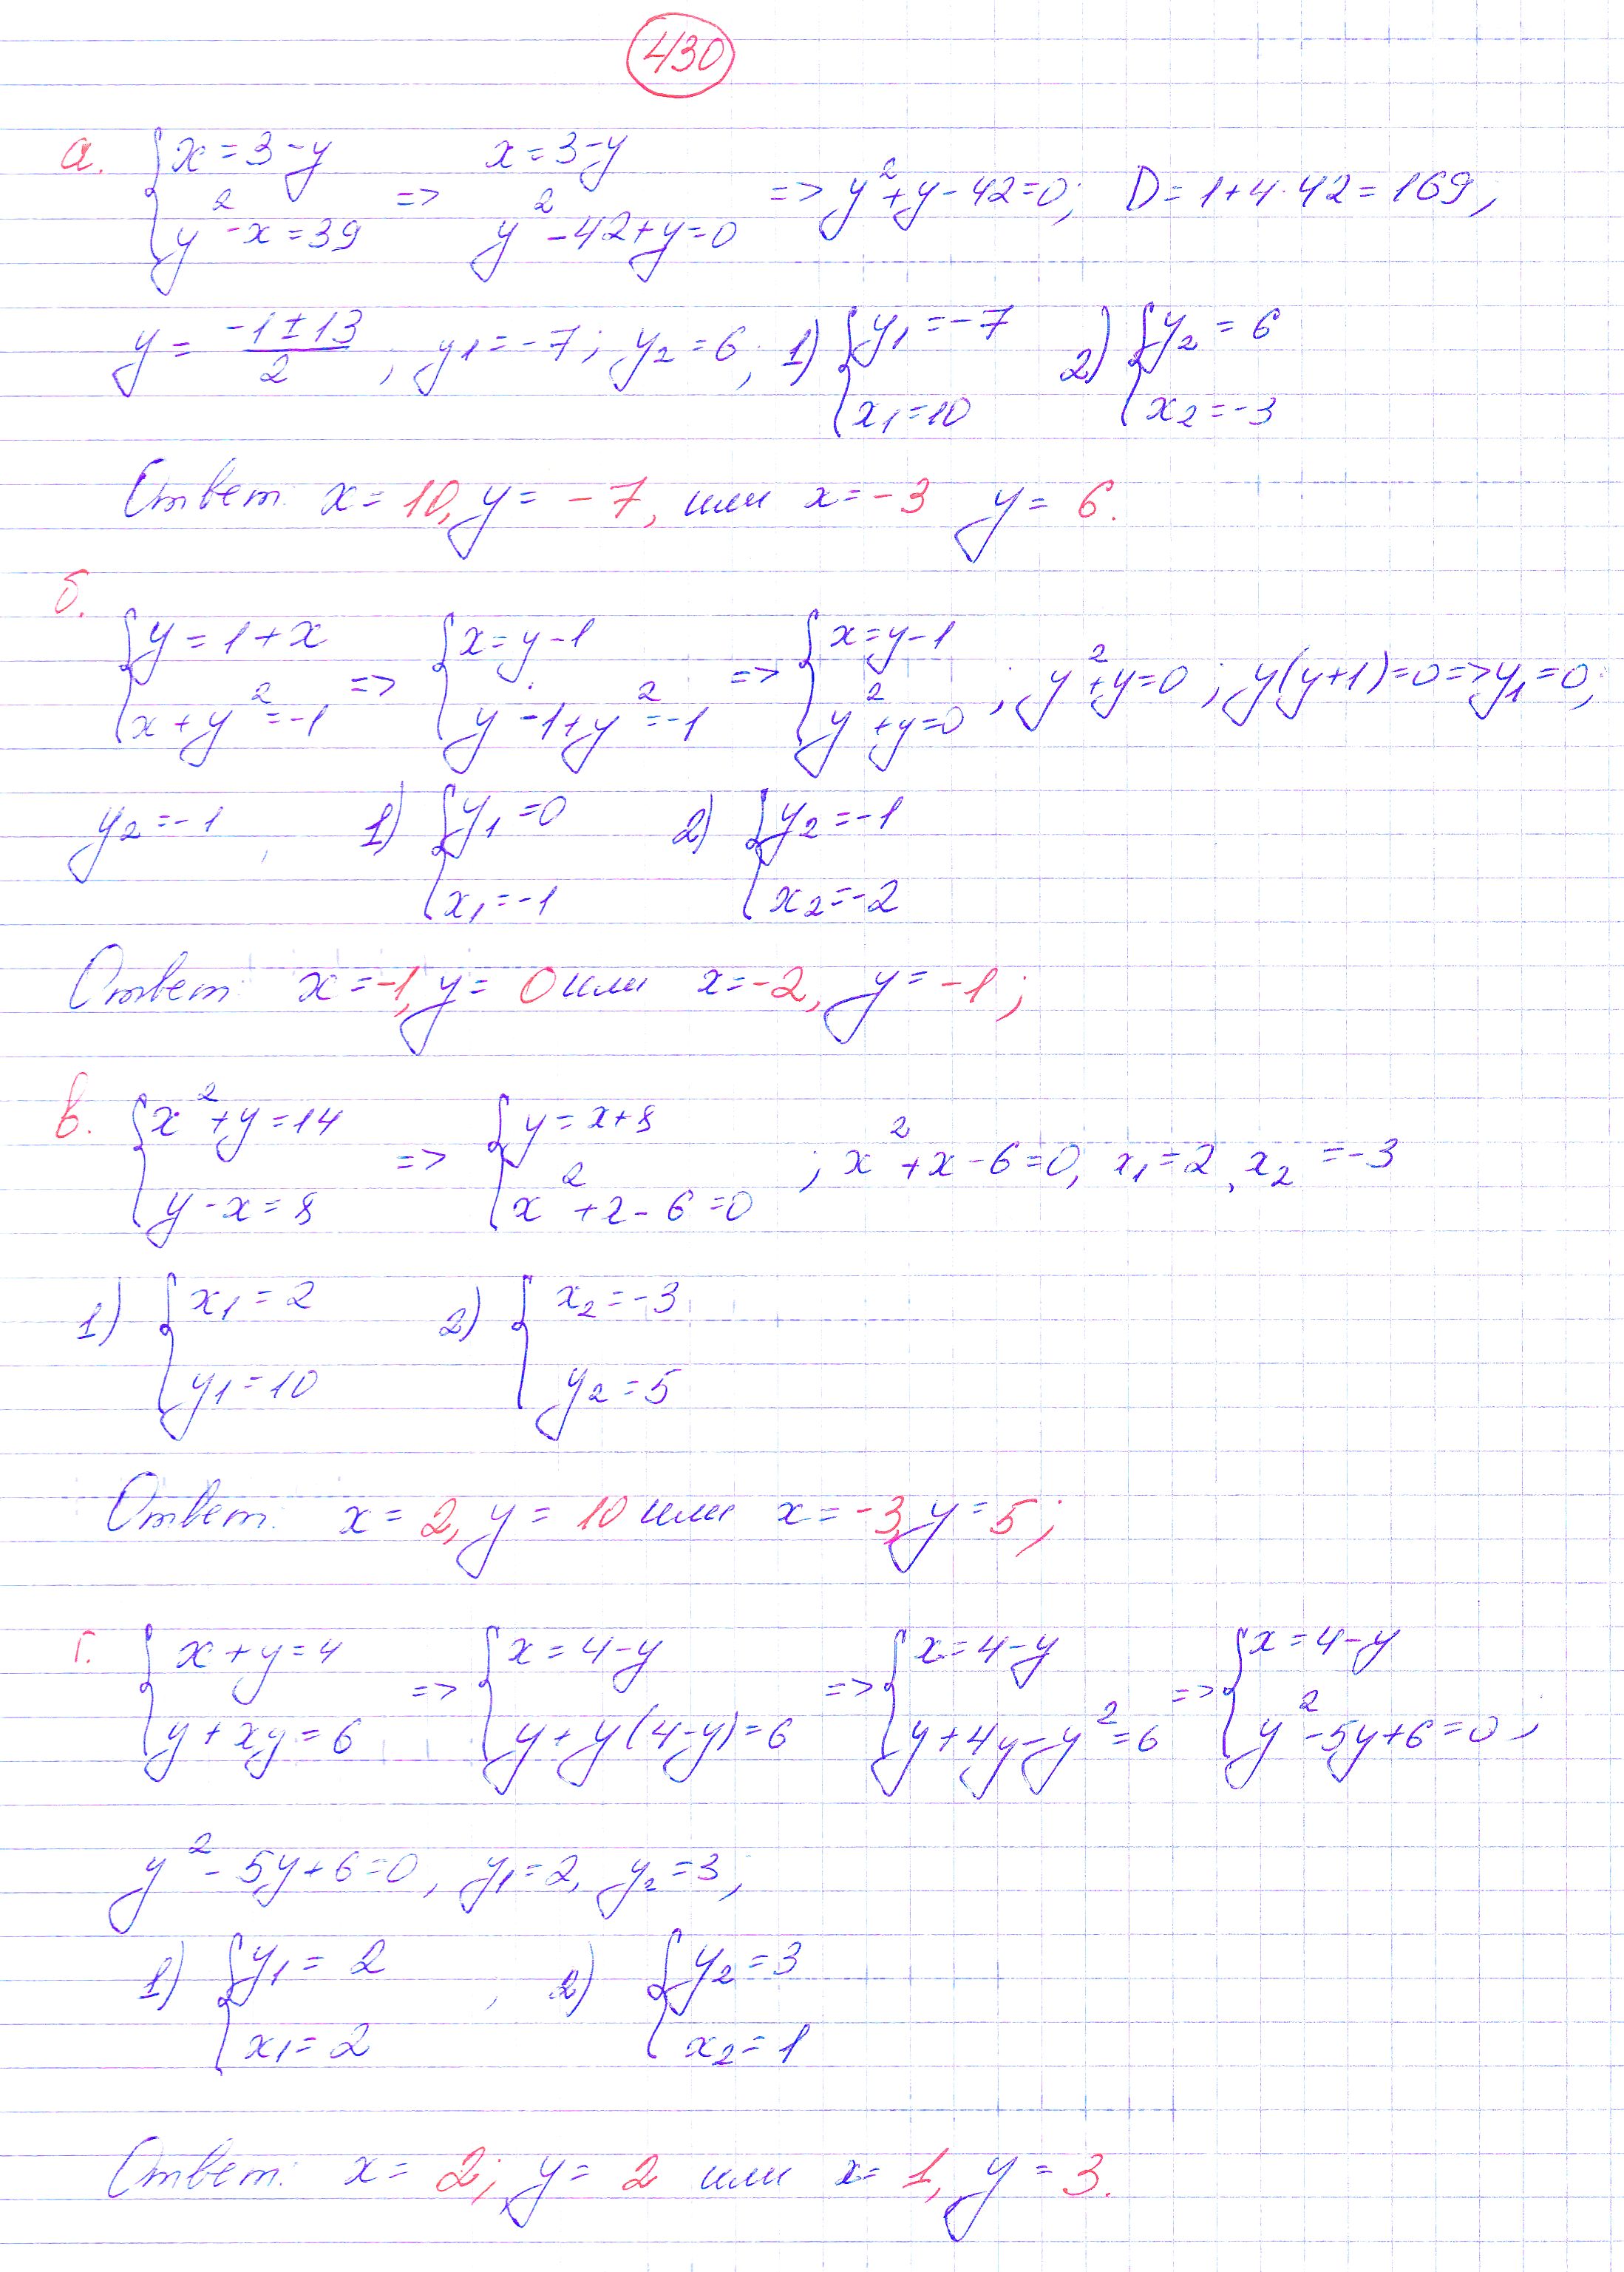 430
а. { x = 3 - y ; y² - x = 39 => x = 3 - y ; y² - 42 + y = 0 => y² + y - 42 = 0; D = 1 + 4 · 42 = 169,
y = (-1 ± 13)/2 , y1 = -7; y2 = 6, 1) { y1 = -7 ; x1 = 10 2) { y2 = 6 ; x2 = -3
Ответ: x = 10, y = -7, или x = -3 y = 6.
б.
{ y = 1 + x ; x + y² = -1 => { x = y - 1 ; y - 1 + y² = -1 => { x = y - 1 ; y² + y = 0 ; y² + y = 0 ; y(y+1) = 0 => y1 = 0;
y2 = -1 , 1) { y1 = 0 ; x1 = -1 2) { y2 = -1 ; x2 = -2
Ответ: x = -1, y = 0 или x = -2, y = -1;
в. { x² + y = 14 ; y - x = 8 => { y = x + 8 ; x² + 2 - 6 = 0 ; x² + x - 6 = 0; x1 = 2, x2 = -3
1) { x1 = 2 ; y1 = 10 2) { x2 = -3 ; y2 = 5
Ответ: x = 2, y = 10 или x = -3, y = 5;
г. { x + y = 4 ; y + xy = 6 => { x = 4 - y ; y + y(4 - y) = 6 => { x = 4 - y ; y + 4y - y² = 6 => { x = 4 - y ; y² - 5y + 6 = 0 ;
y² - 5y + 6 = 0, y1 = 2, y2 = 3;
1) { y1 = 2 ; x1 = 2 , 2) { y2 = 3 ; x2 = 1
Ответ: x = 2; y = 2 или x = 1, y = 3.